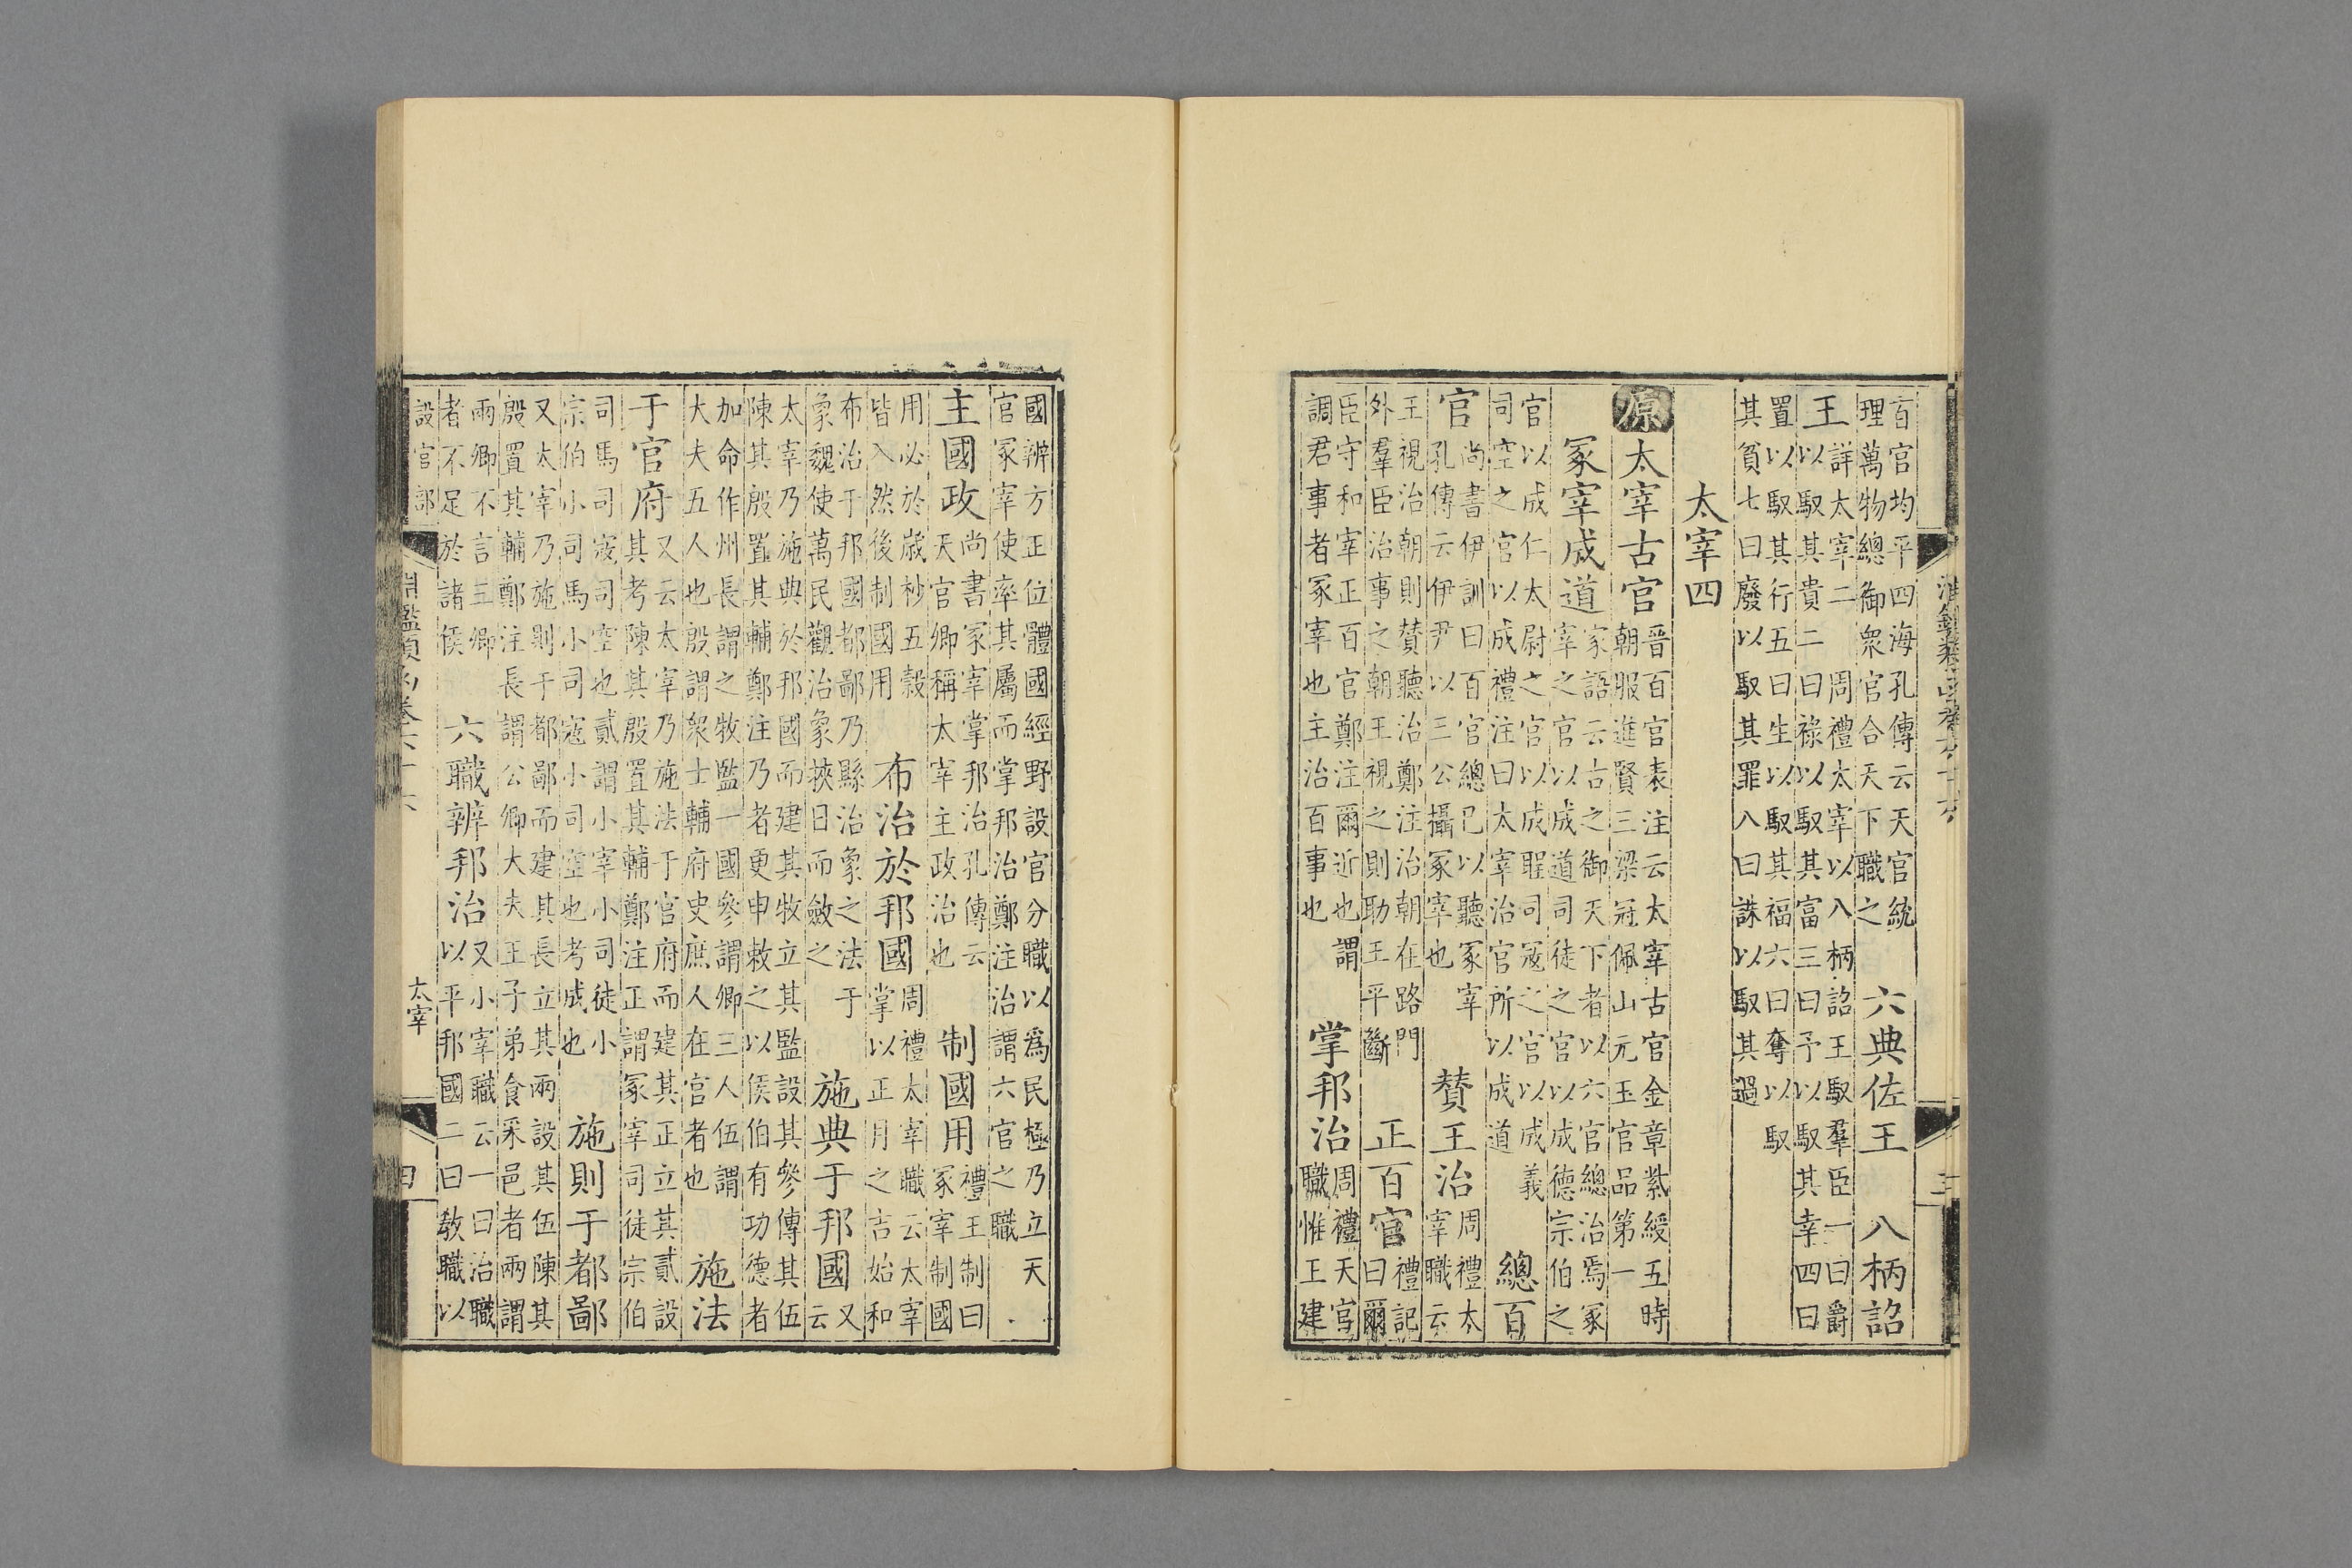 百官均平四海孔傳云天官統
理萬物總御衆官合天下職之
六典佐王
八柄詔
王
詳太宰二
周禮太宰以八柄詔王馭羣臣一曰爵
以馭其貴二曰祿以馭其富三曰予以馭其幸四曰
置以馭其行五曰生以馭其福六曰奪以馭
其貧七曰廢以馭其罪八曰誅以馭其過
太宰四
原
太宰古官
晉百官表注云太宰古官金章紫綬五時
朝服進賢三梁冠佩山元玉官品第一
冢宰成道
家語云古之御天下者以六官總治焉冢
宰之官以成道司徒之官以成德宗伯之
官以成仁太尉之官以成聖司寇之官以成義
司空之官以成禮注曰太宰治官所以成道
總百
官
尚書伊訓曰百官總己以聽冢宰
孔傳云伊尹以三公攝冢宰也
贊王治
周禮太
宰職云
王視治朝則贊聽治鄭注治朝在路門
外羣臣治事之朝王視之則助王平斷
正百官
禮記
曰爾
臣守和宰正百官鄭注爾近也謂
調君事者冢宰也主治百事也
掌邦治
周禮天官
職惟王建
國辨方正位體國經野設官分職以爲民極乃立天
官冢宰使率其屬而掌邦治鄭注治謂六官之職
主國政
尚書冢宰掌邦治孔傳云
天官卿稱太宰主政治也
制國用
禮王制曰
冢宰制國
用必於歲杪五穀
皆入然後制國用
布治於邦國
周禮太宰職云太宰
掌以正月之吉始和
布治于邦國都鄙乃縣治象之法于
象魏使萬民觀治象挾日而斂之
施典于邦國
又
云
太宰乃施典於邦國而建其牧立其監設其參傅其伍
陳其殷置其輔鄭注乃者更申敕之以侯伯有功德者
加命作州長謂之牧監一國參謂卿三人伍謂
大夫五人也殷謂衆士輔府史庶人在官者也
施法
于官府
又云太宰乃施法于官府而建其正立其貳設
其考陳其殷置其輔鄭注正謂冢宰司徒宗伯
司馬司寇司空也貳謂小宰小司徒小
宗伯小司馬小司寇小司空也考成也
施則于都鄙
又太宰乃施則于都鄙而建其長立其兩設其伍陳其
殷置其輔鄭注長謂公卿大夫王子弟食采邑者兩謂
兩卿不言三卿
者不足於諸侯
六職辨邦治
又小宰職云一曰治職
以平邦國二曰敎職以
淵鑑類函卷六十六
太宰
四